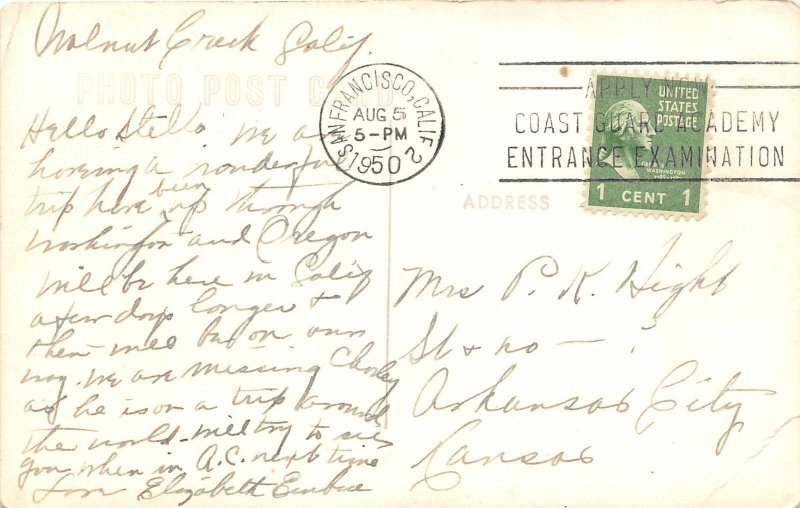 Walnut Creek Calif.
PHOTO POST CARD
Hello Stella We are
having a wonderful
trip have been up through
Washington and Oregon
will be here in Calif
a few days longer &
then will be on our
way. We are missing Charley
as he is on a trip around
the world - will try to see
you when in A.C. next time
Love Elizabeth
SAN FRANCISCO, CALIF. 2
AUG 5
5-PM
1950
APPLY NOW
COAST GUARD ACADEMY
ENTRANCE EXAMINATION
UNITED
STATES
POSTAGE
WASHINGTON
1 CENT 1
ADDRESS
Mrs P. K. Hight
St & no —
Arkansas City
Kansas